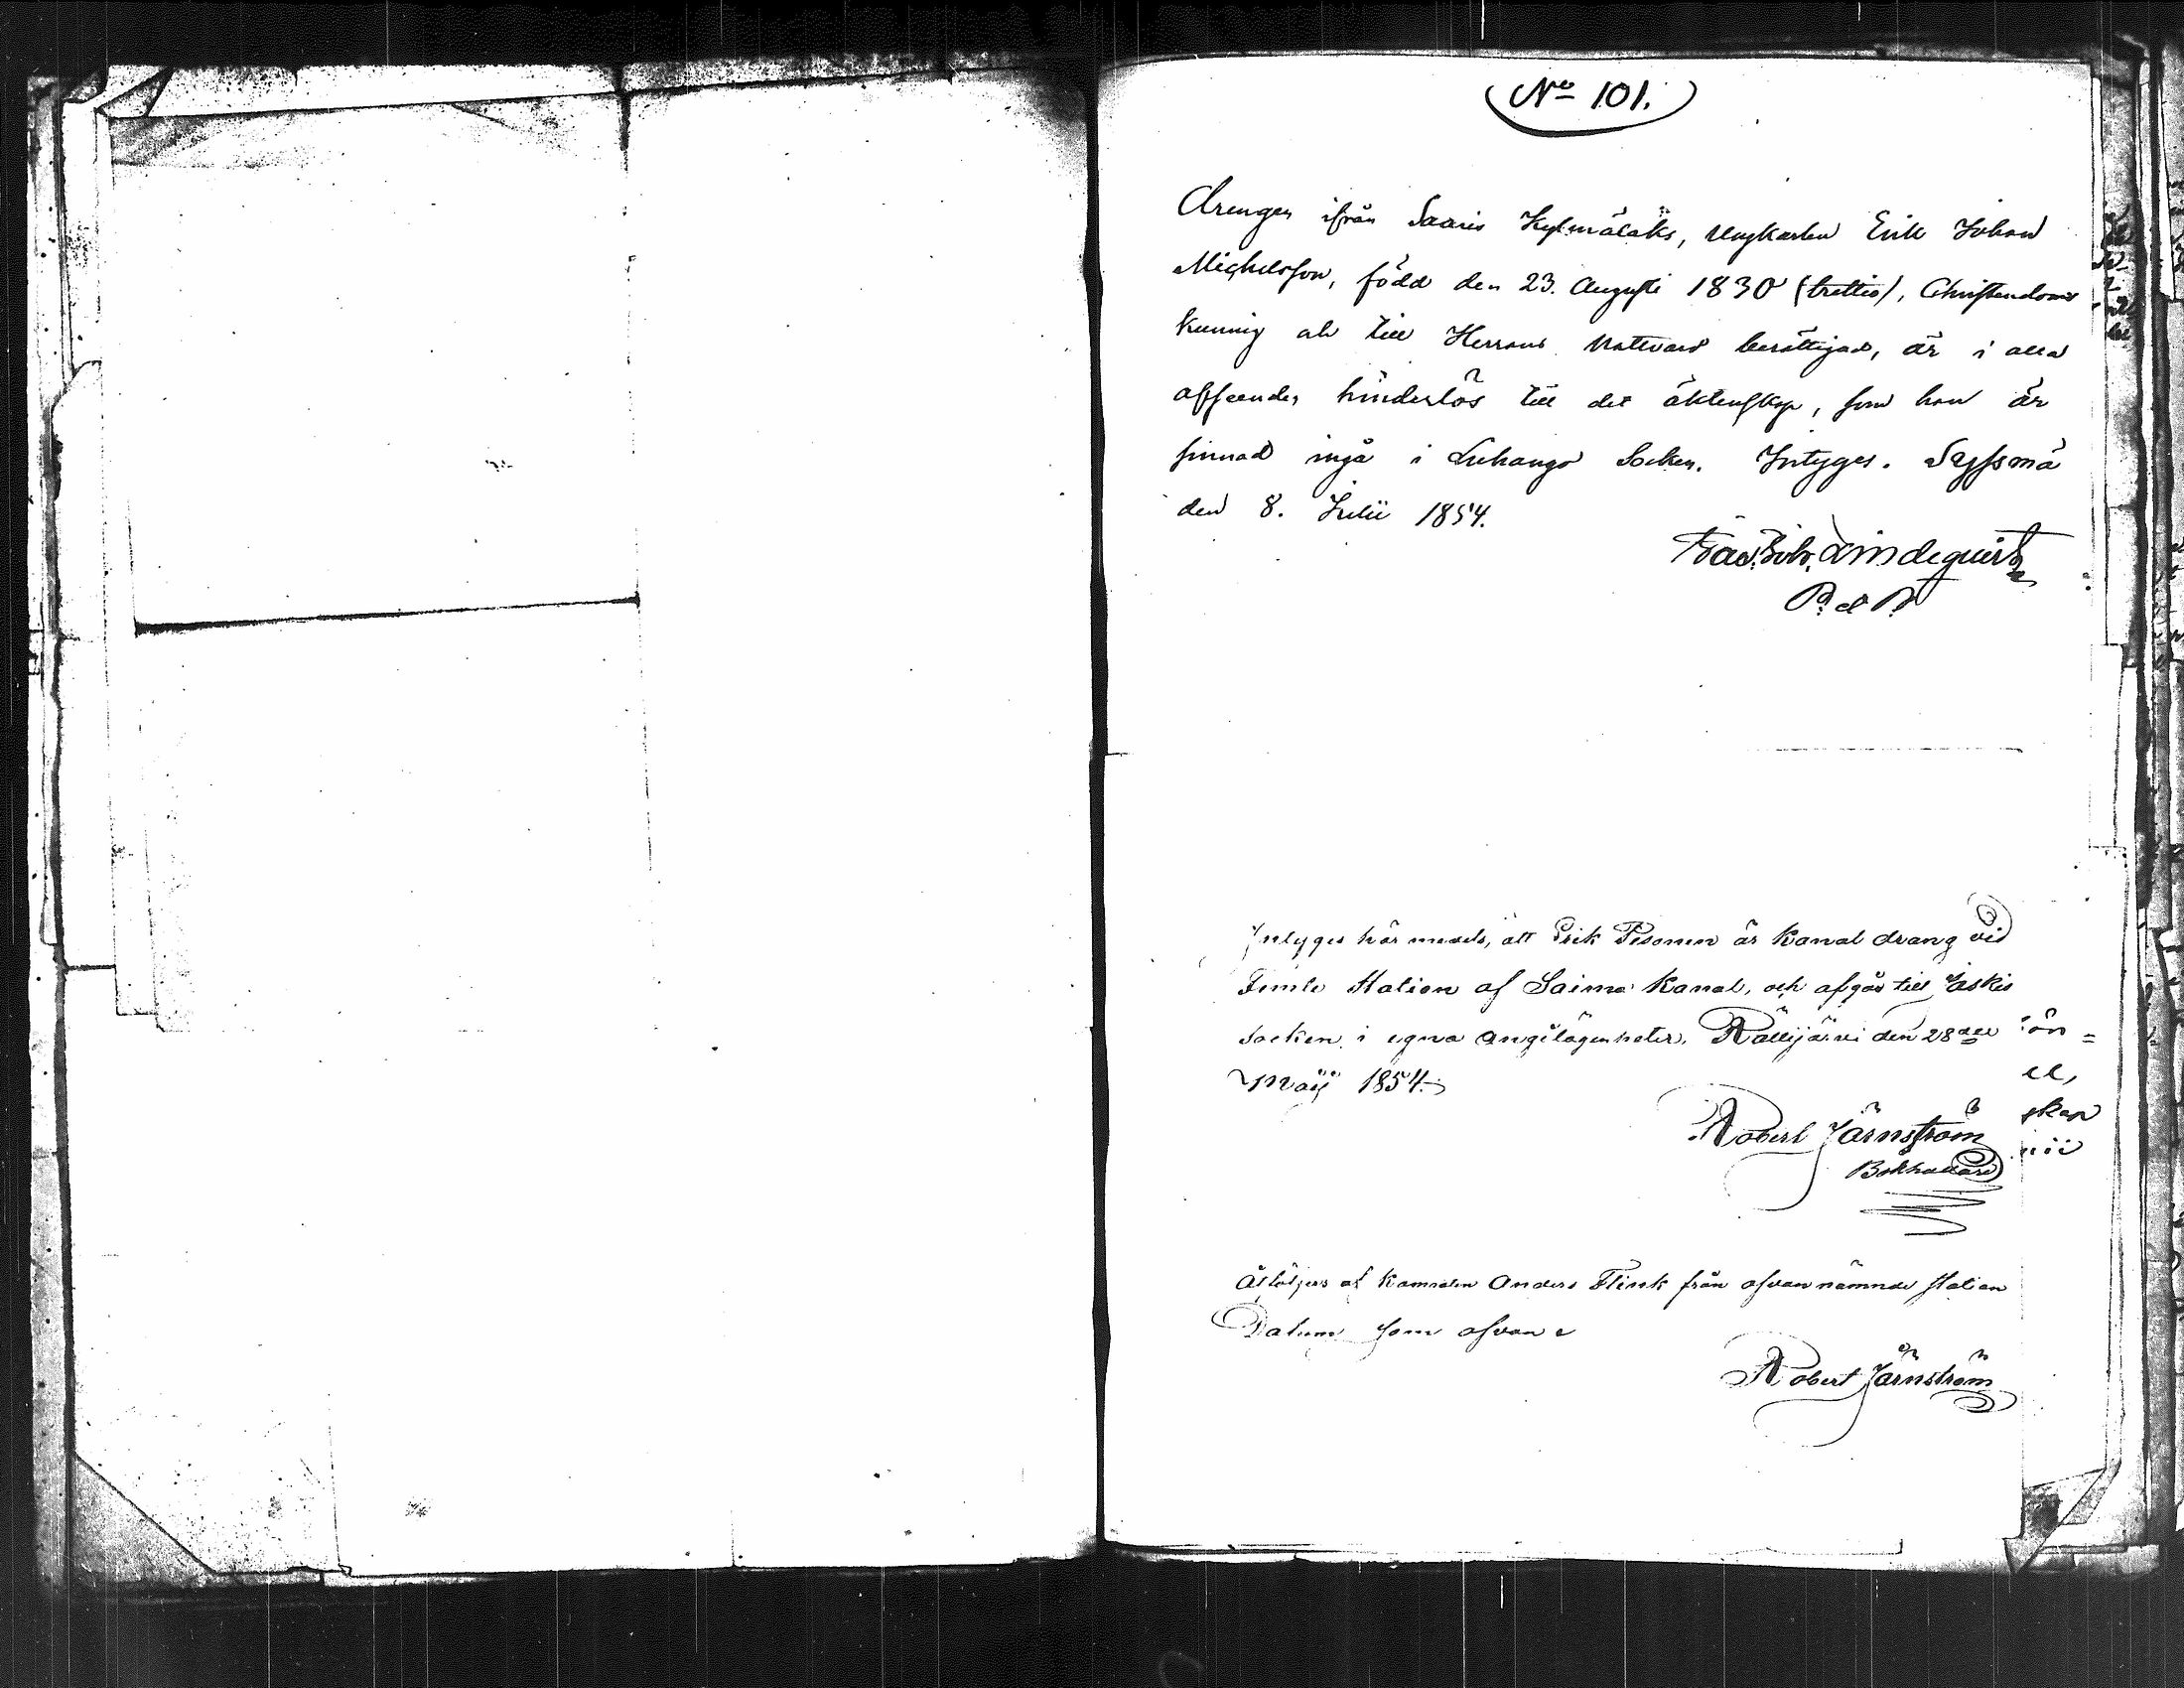 No 101.
Drengen ifrån Saaris Kylmälaks, Ungkarlen Erik Johan
Michelsson, född den 23. Augusti 1830 (trettio), Christendoms
kunnig och till Herrans Nattvard berättigad, är i alla
afseenden hinderlös till det äktenskap, som han är
sinnad ingå i Luhango Socken. Intygas. Sysmä
den 8. Julii 1854.
Joh. Lindequist
P. et P.
Intyges här medels, att Erik Pesonen är Kanal dräng vid
Femte Station af Saima Kanal, och afgår till Jäskis
Socken i egna angelägenheter. Rättijärvi den 28de
Maji 1854.
Robert Järnström
Bokhållare
Åtföljes af Kamraten Anders Flink från ofvannämnde Station
Datum som ofvan
Robert Järnström
ön=
el,
skap
nii